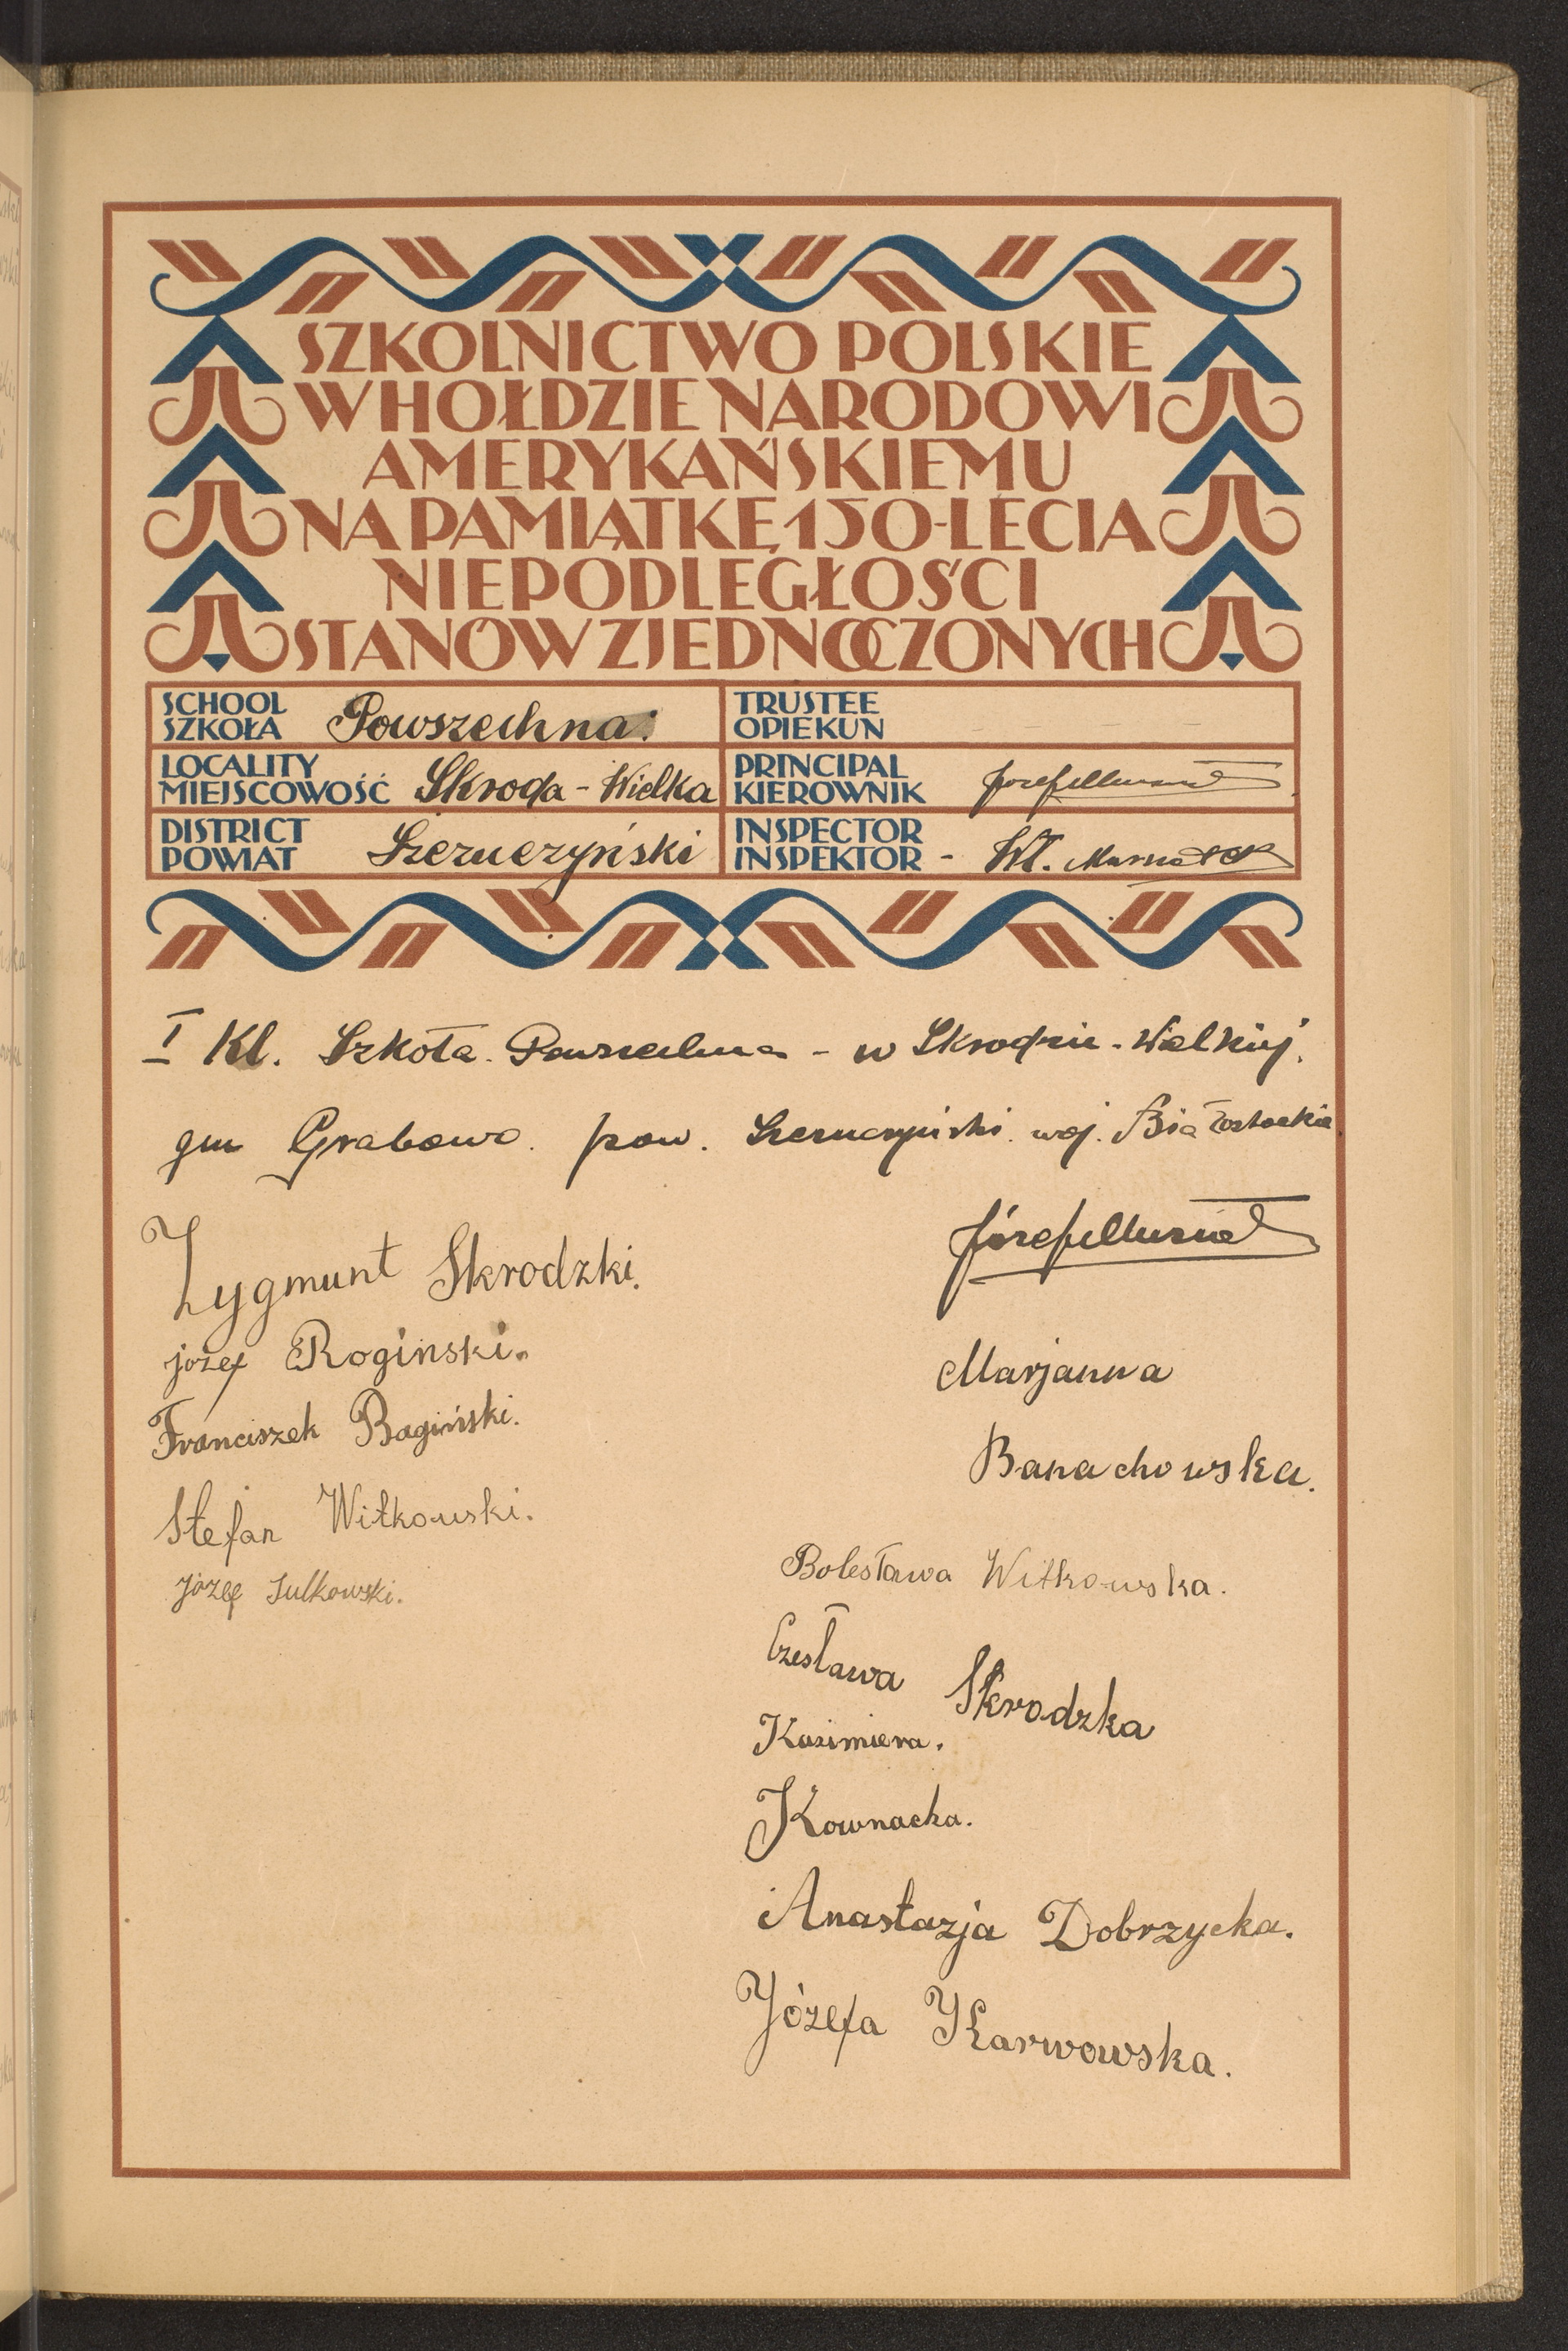 SZKOLNICTWO POLSKIE
W HOŁDZIE NARODOWI
AMERYKAŃSKIEMU
NA PAMIĄTKĘ 150-LECIA
NIEPODLEGŁOŚCI
STANÓW ZJEDNOCZONYCH
SCHOOL
SZKOŁA Powszechna.
TRUSTEE
OPIEKUN
LOCALITY
MIEJSCOWOŚĆ Skroda - Wielka
PRINCIPAL
KIEROWNIK Józef
DISTRICT
POWIAT Szczuczyński
INSPECTOR
INSPEKTOR - Wł.
I Kl. Szkoła Powszechna - w Skrodzie - Wielkiej.
gm Grabowo. pow. Szczuczyński. woj. Białostockie
Józef
Zygmunt Skrodzki.
józef Roginski.
Franciszek Bagiński.
Stefan Witkowski.
józef Sulkowski.
Marjanna
Banachowska.
Bolesława Witkowska.
Czesława Skrodzka
Kazimiera.
Kownacka.
Anastazja Dobrzycka.
Józefa Karwowska.